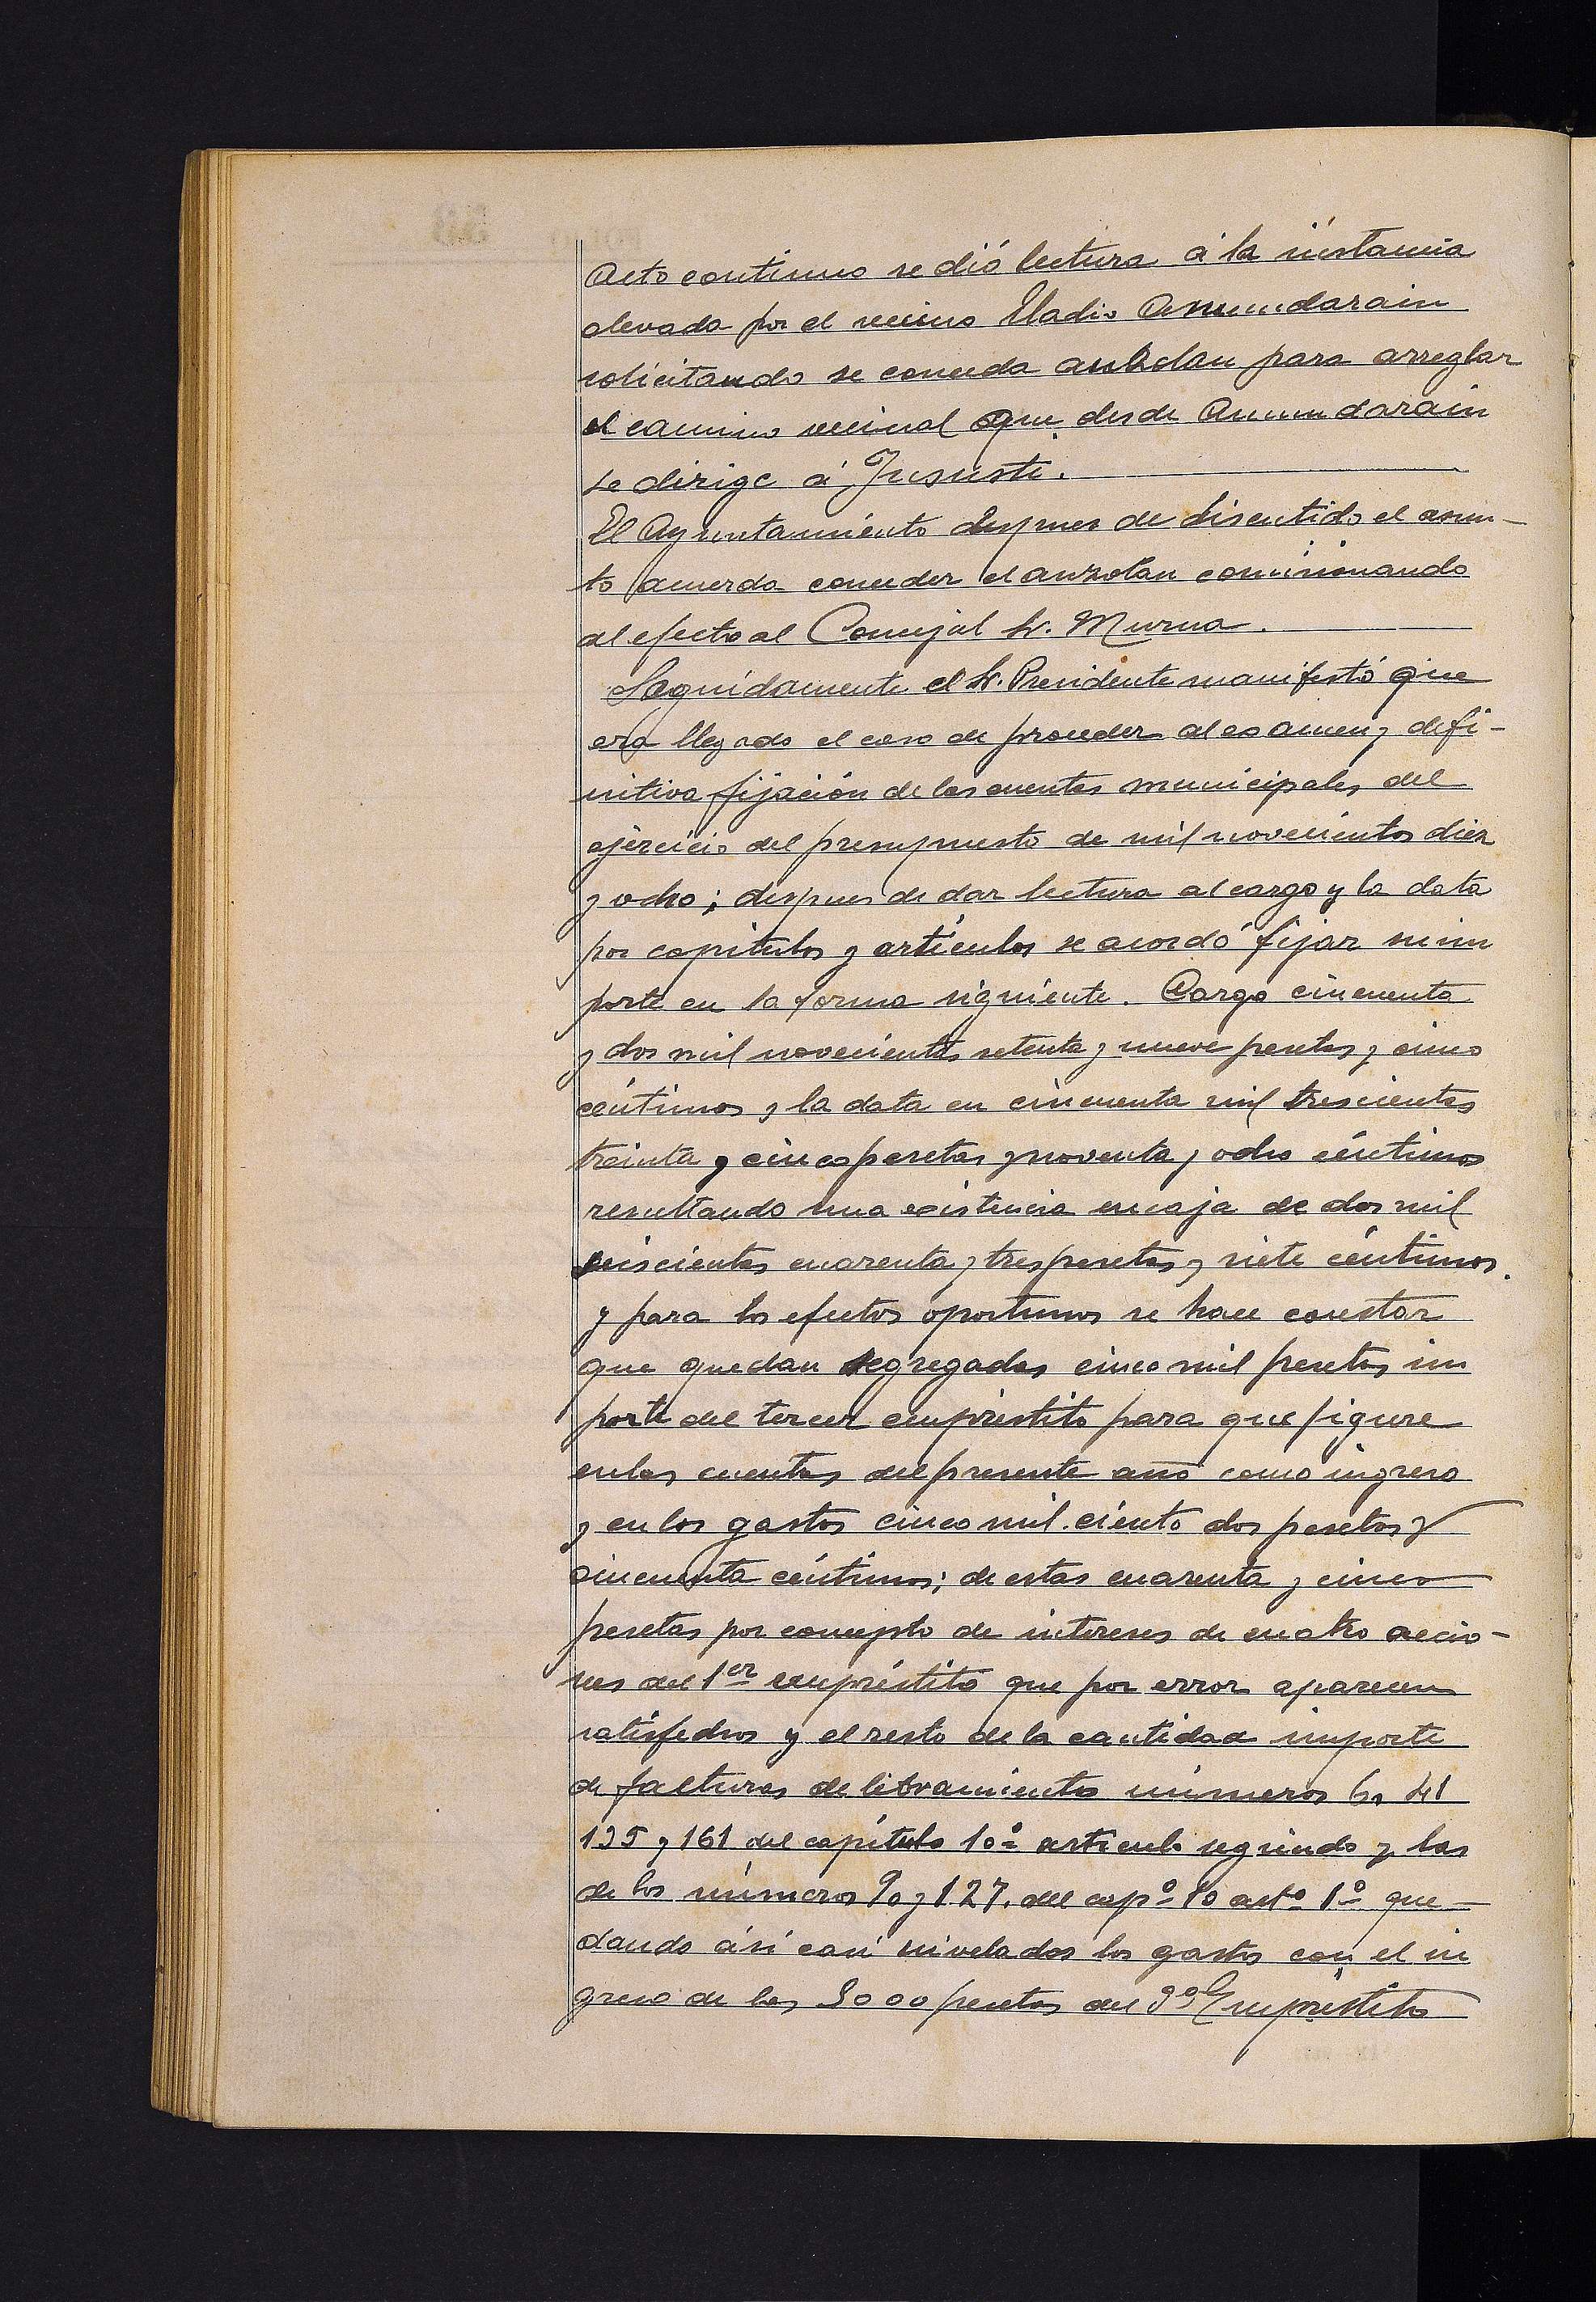 Acto continuo se dió lectura á la instancia
elevada por el vecino Eladio Amundarain
solicitando se conceda auzolan para arreglar
el camino vecinal que desde Amundarain
se dirige á Jususte.
El Ayuntamiento despues de discutido el asun-
to acuerda conceder el auzolan comisionando
al efecto al Concejal Sr. Murua.
Seguidamente el Sr. Presidente manifestó que
era llegado el caso de proceder al examen y defi-
nitiva fijación de las cuentas municipales del
ejercicio del presupuesto de mil novecientos diez
y ocho; despues de dar lectura al cargo y la data
por capitulos y artículos se acordó fijar su im
porte en la forma siguiente. Cargo cincuenta
y dos mil novecientas setenta y nueve pesetas y cinco
céntimos y la data en cincuenta mil trescientas
treinta y cinco pesetas y noventa y ocho céntimos
resultando una existencia en caja de dos mil
seiscientas cuarenta y tres pesetas y siete céntimos.
y para los efectos oportunos se hace constar
que quedan segregadas cinco mil pesetas im
porte del tercer empréstito para que figure
en las cuentas del presente año como ingreso
y en los gastos cinco mil ciento dos pesetas y
cincuenta céntimos; de estas cuarenta y cinco
pesetas por concepto de intereses de cuatro accio-
nes del 1er empréstito que por error aparecen
satisfechos y el resto de la cantidad importe
de facturas de libramientos números 6. 41
135 y 161 del capítulo 10º artículo segundo y las
de los números 90 y 127. del capº 10 artº 1º que
dando así casi nivelados los gastos con el in
greso de las 5000 pesetas del 3º Empréstito